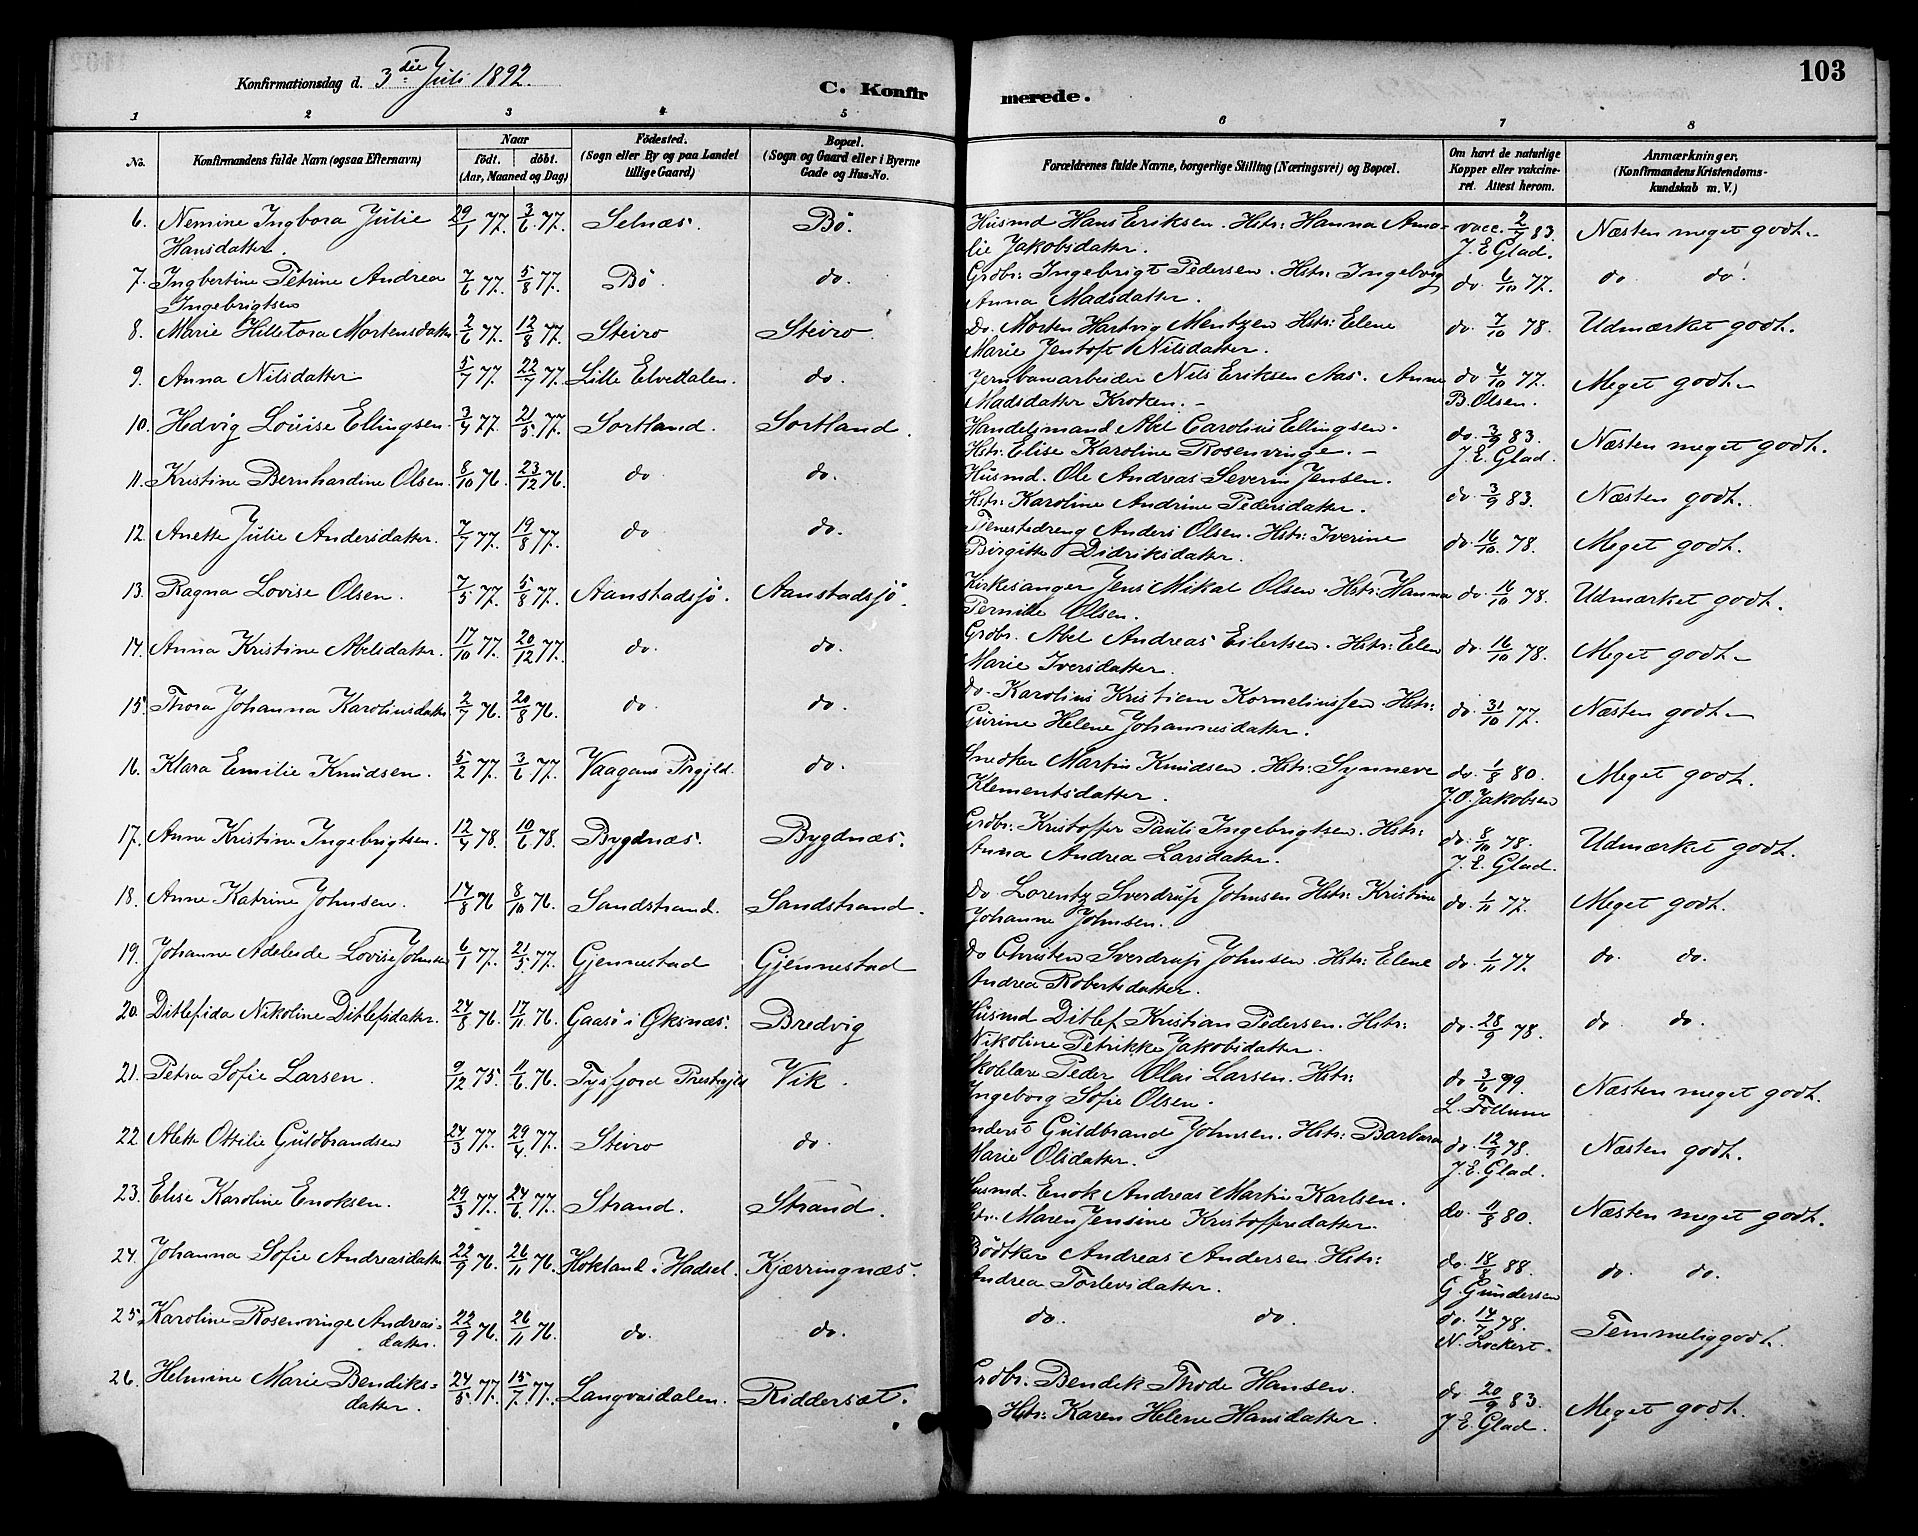 Konfirmationsdag d. 3die Juli 1892.
C. Konfir
merede.
103
1 2 3 4 5 6 7 8
No.
Konfirmandens fulde Navn (ogsaa Efternavn)
Naar
födt. döbt.
(Aar, Maaned og Dag)
Födested.
(Sogn eller By og paa Landet
tillige Gaard)
Bopæl.
(Sogn og Gaard eller i Byerne
Gade og Hus-No.
Forældrenes fulde Navne, borgerlige Stilling (Næringsvei) og Bopæl.
Om havt de naturlige
Kopper eller vakcine-
ret. Attest herom.
Anmærkninger.
(Konfirmandens Kristendoms-
kundskab m. V.)
6. Nemine Ingbora Julie 29/1 77. 3/6 77. Selnæs. Bö. Husmd Hans Eriksen. Hstr: Hanna Ama- vacc. 2/7 83 Næsten meget godt.
Hansdatter. lie Jakobsdatter. J. E. Glad.
7. Ingbertine Petrine Andrea 7/6 77. 5/8 77. Bö. do. Grdbr: Ingebrigt Pedersen. Hstr: Ingebvig do. 6/10 77. do do.
Ingebrigtsen Anna Madsdatter.
8. Marie Hilletora Mortensdatter 2/6 77. 12/8 77. Steiro Steiro. Do. Morten Hartvig Mentzen Hstr: Elene do. 7/10 78. Udmærket godt.
Marie Jentoft Nilsdatter.
9. Anna Nilsdatter 5/7 77. 22/7 77. Lille Elvedalen. do. Jernbanarbeider Nils Eriksen Aas. Anne do 4/10 77. Meget godt.
Madsdatter Kroken. B. Olsen.
10. Hedvig Louise Ellingsen. 3/4 77. 21/5 77. Sortland. Sortland. Handelsmand Abel Carolius Ellingsen. do. 3/9 83. Næsten meget godt.
Hstr: Elise Karoline Rosenvinge. J. E. Glad.
11. Kristine Bernhardine Olsen. 8/10 76. 23/12 76. do do. Husmd. Ole Andreas Severin Jensen. do. 3/9 83. Næsten godt.
Hstr: Karoline Andrine Pedersdatter.
12. Anette Julie Andersdatter. 7/7 77. 19/8 77. do do. Tjenestedreng Anders Olsen. Hstr: Iverine do. 16/10 78. Meget godt.
Birgitte Didriksdatter.
13. Ragna Lovise Olsen. 7/5 77. 5/8 77. Aanstadsjö. Aanstadsjö. Kirkesanger Jens Mikal Olsen. Hstr: Hanna do. 16/10 78. Udmærket godt.
Pernille Olsen.
14. Anna Kristine Abelsdatter. 17/10 77. 20/12 77. do. do. Grdbr. Abel Andreas Eilertsen. Hstr: Elen do. 16/10 78. Meget godt.
Marie Iversdatter.
15. Thora Johanna Karoliusdatter 2/7 76. 20/8 76. do do. do. Karolius Kristian Korneliussen. Hstr: do. 31/10 77. Næsten godt.
Gurine Helene Johannesdatter.
16. Klara Emilie Knudsen. 5/2 77. 3/6 77. Vaagans Prgjld. do. Snedker Martin Knudsen. Hstr: Synneve do. 1/8 80. Meget godt.
Klementsdatter. J. O. Jakobsen
17. Anne Kristine Ingebrigtsen. 12/4 78. 10/6 78. Bygdnæs. Bygdnæs. Grdbr: Kristoffer Pauli Ingebrigtsen. Hstr: do. 8/10 78. Udmærket godt.
Anna Andrea Larsdatter. J. E. Glad.
18. Anne Katrine Johnsen. 14/8 76 8/10 76. Sandstrand. Sandstrand. do Lorentz Sverdrup Johnsen Hstr: Kristine do. 1/11 77. Meget godt.
Johanne Johnsen.
19. Johanne Adeleide Lovise Johnsen 6/1 77. 21/5 77. Gjennestad Gjennestad do Christen Sverdrup Johnsen. Hstr: Elene do. 1/11 77. do. do.
Andrea Robertsdatter.
20. Ditlefida Nikoline Ditlefsdatter. 24/8 76. 17/11 76. Gaasö i Øksnæs. Bredvig Husmd Ditlef Kristian Pedersen. Hstr: do. 28/9 78. do do.
Nikoline Petrikke Jakobsdatter.
21. Petra Sofie Larsen. 9/12 75. 11/6 76. Tysfjord Prestegjld Vik. Skolelær Peder Olai Larsen. Hstr: do 3/6 99 Næsten meget godt.
Ingeborg Sofie Olsen. L. Follum
22 Alette Ottilie Guldbrandsen 24/3 77. 29/4 77. Steiro do. Inderst Guldbrand Johnsen. Hstr: Barbara do. 12/9 78. Næsten godt.
Marie Olsdatter. J. E. Glad.
23. Elise Karoline Enoksen. 29/3 77. 24/6 77. Strand. Strand. Husmd. Enok Andreas Martin Karlsen. do. 11/8 80. Næsten meget godt.
Hstr. Maren Jensine Kristoffersdatter.
24. Johanna Sofie Andreasdatter 22/9 76. 26/11 76. Hokland i Hadsel. Kjærringnæs. Bödtker Andreas Andersen. Hstr: do. 18/8 88. do. do.
Andrea Torlevsdatter. G. Gundersen
25. Karoline Rosenvinge Andreas- 22/9 76. 26/11 76. do. do. do do. do. 14/7 78. Temmelig godt.
datter. N. Lockert.
26. Helmine Marie Bendiks- 24/5 77. 15/7 77. Langvasdalen. Riddersæt. Grdbr. Bendik Thode Hansen. do 20/9 83. Meget godt.
datter. Hstr: Karen Helene Hansdatter. J. E. Glad.